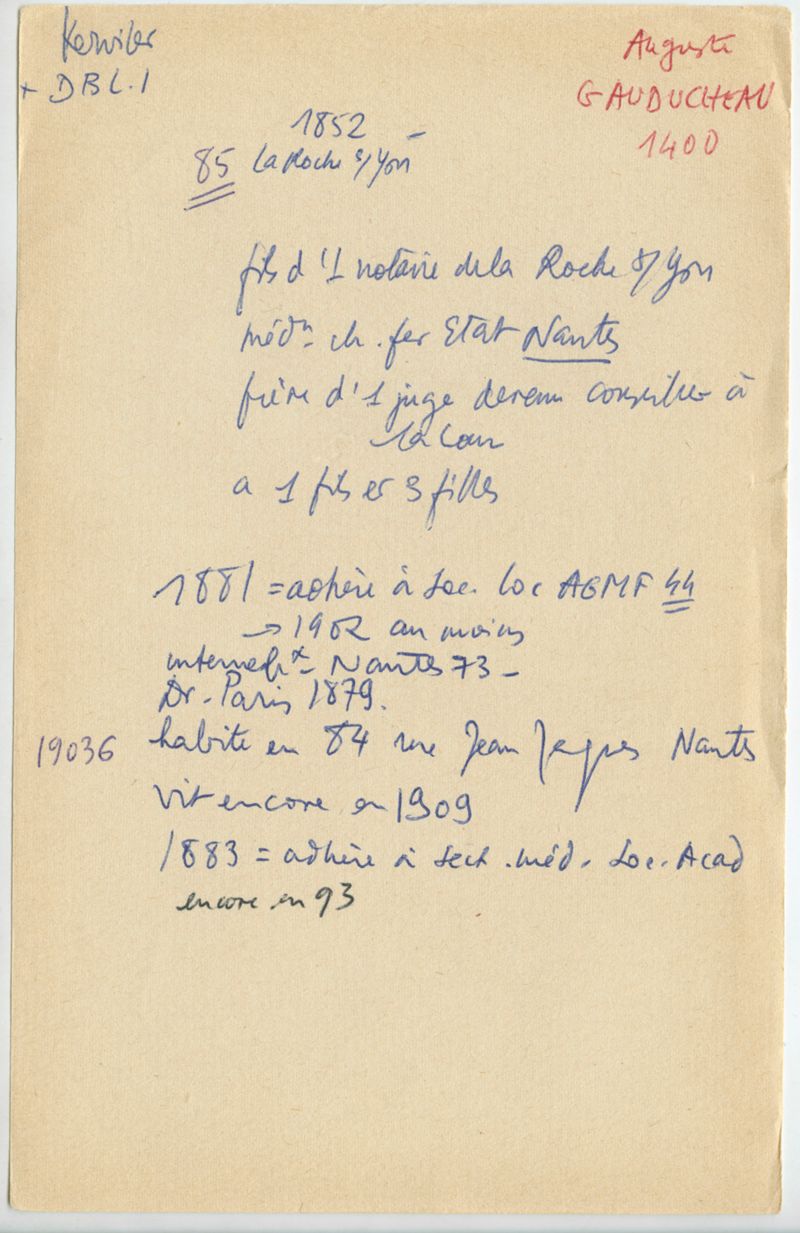 Kerviler
+ DBL.1
Auguste
GAUDUCHEAU
1400
1852 -
85 La Roche s/Yon
fils d'1 notaire de la Roche s/ Yon
médn ch. fer Etat Nantes
frère d'1 juge devenu conseiller à
la Cour
a 1 fils et 3 filles
1881 = adhère à Soc. loc AGMF 44
→ 1902 au moins
interne hx Nantes 73 -
Dr. Paris 1879.
19036 habite en 84 rue Jean Jaques Nantes
vit encore en 1909
1883 = adhère à sect. méd. Soc. Acad
encore en 93